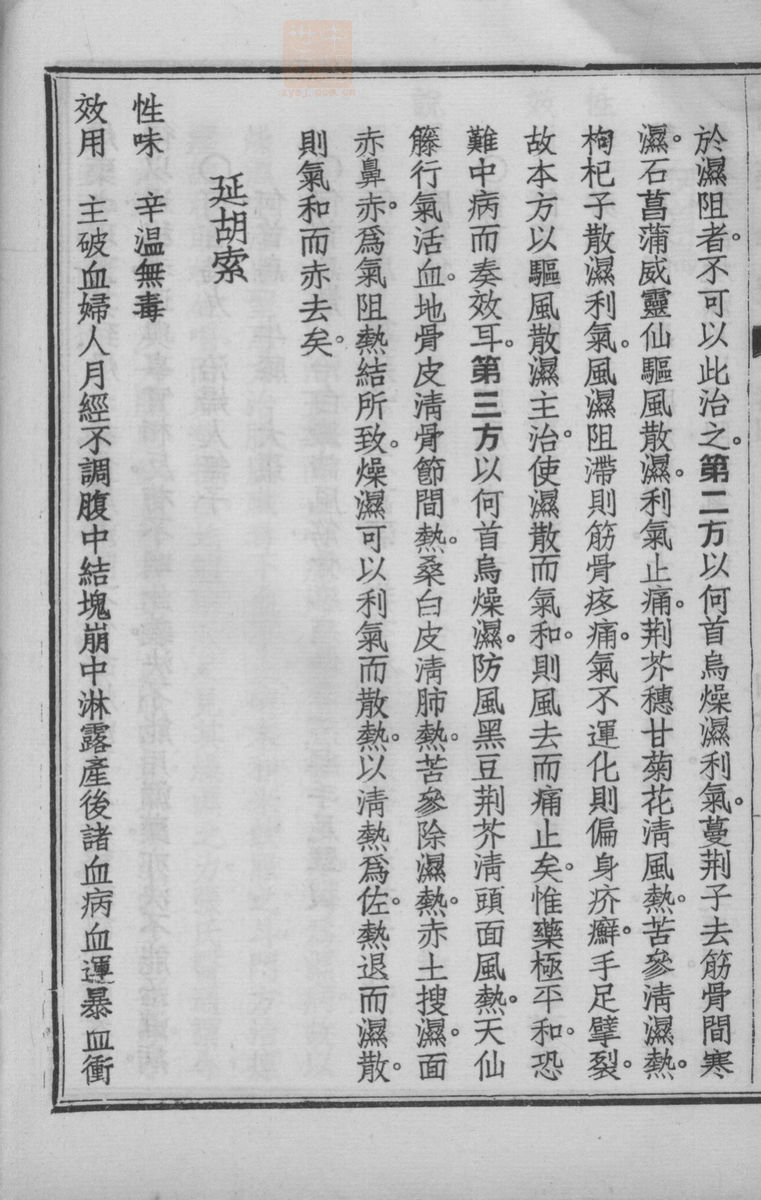 於濕阻者。不可以此治之。第二方以何首烏燥濕利氣。蔓荆子去筋骨間寒
濕。石菖蒲威靈仙驅風散濕。利氣止痛。荆芥穗甘菊花淸風熱。苦參淸濕熱。
枸杞子散濕利氣。風濕阻滯則筋骨疼痛。氣不運化則偏身疥癬。手足擘裂。
故本方以驅風散濕主治。使濕散而氣和。則風去而痛止矣。惟藥極平和。恐
難中病而奏效耳。第三方以何首烏燥濕。防風黑豆荆芥淸頭面風熱。天仙
籐行氣活血。地骨皮淸骨節間熱。桑白皮淸肺熱。苦參除濕熱。赤土搜濕。面
赤鼻赤。爲氣阻熱結所致。燥濕可以利氣而散熱。以淸熱爲佐。熱退而濕散。
則氣和而赤去矣。
延胡索
性味 辛溫無毒
效用 主破血婦人月經不調腹中結塊崩中淋露產後諸血病血運暴血衝
zysj.com.cn